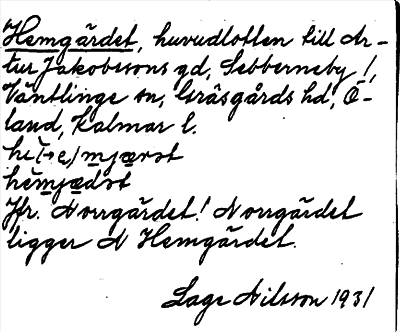 Hemgärdet, huvudlotten till Ar-
tur Jakobssons gd, Sebberneby!,
Väntlinge sn, Gräsgårds hd, Ö-
land, Kalmar l.
he(-e)mjærst
hemjædst
Jfr. Norrgärdet! Norrgärdet
ligger N Hemgärdet.
Lage Nilsson 1931